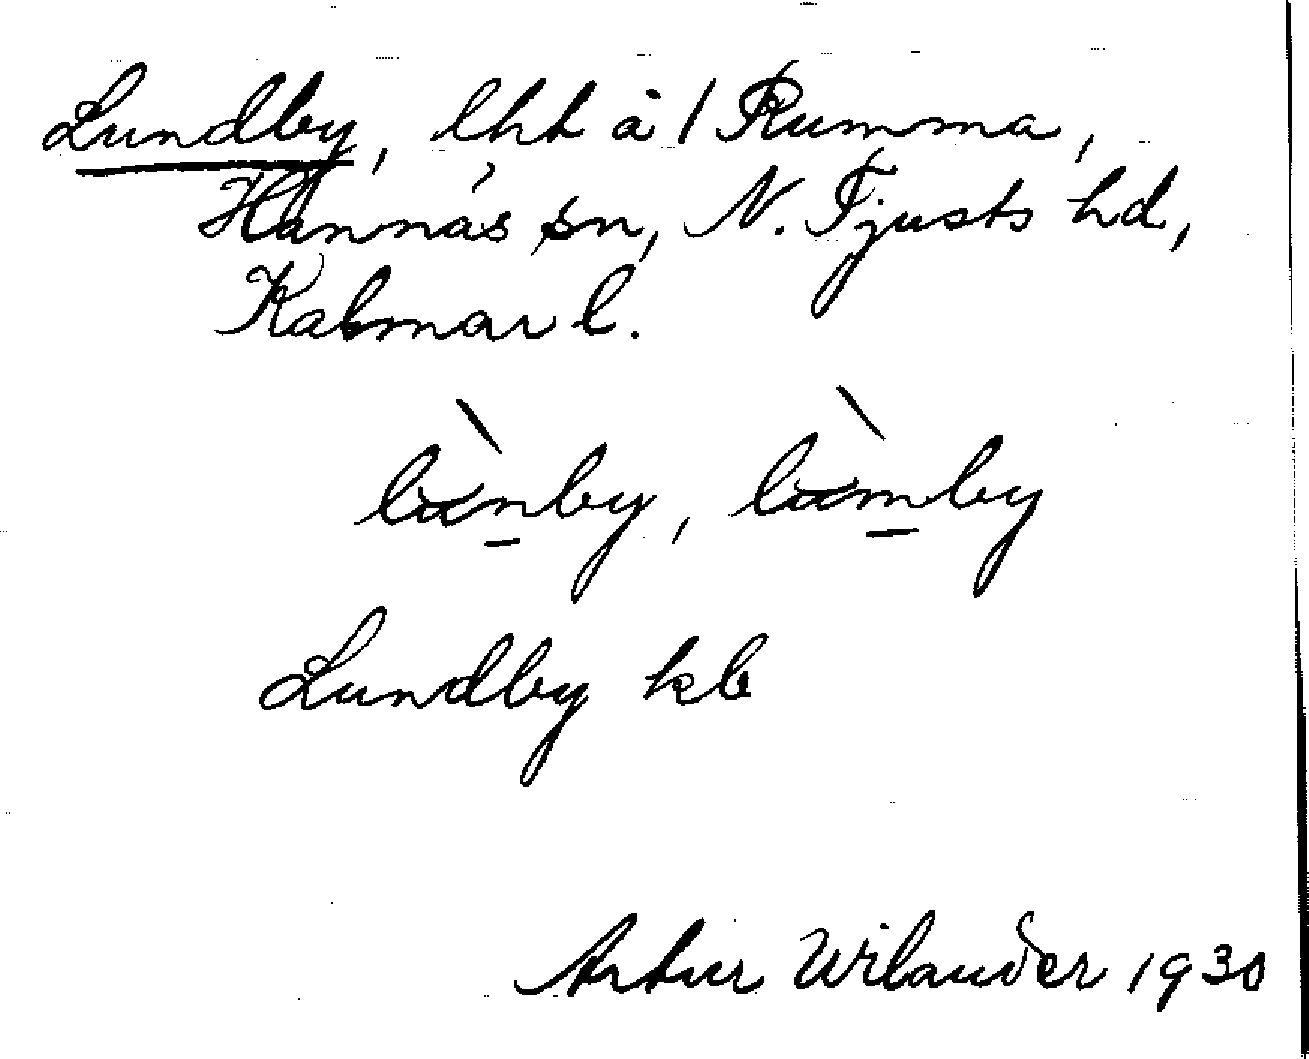 Lundby, lht å 1 Rumma,
Hannäs sn, N. Tjusts hd,
Kalmar l.
lùnby, lùmby
Lundby kb
Artur Wilander 1930